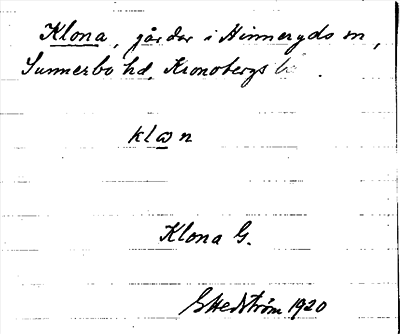 Klona, gårdar i Hinneryds sn,
Sunnerbo hd, Kronobergs
klωn
Klona G.
Hedström 1920